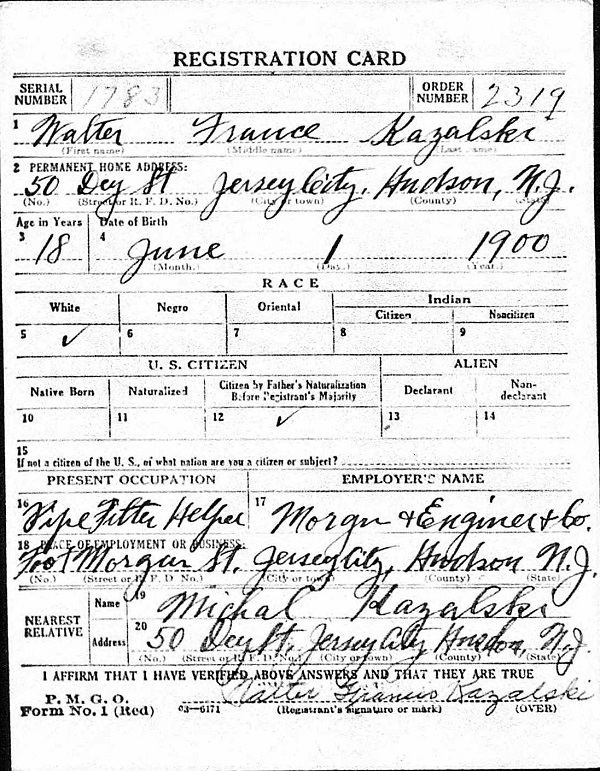 REGISTRATION CARD
SERIAL NUMBER 1783 ORDER NUMBER 2319
1 Walter France Kazalski
(First name) (Middle name) (Last name)
2 PERMANENT HOME ADDRESS:
50 Dey St Jersey City, Hudson, N.J.
(No.) (Street or R. F. D. No.) (City or town) (County) (State)
Age in Years Date of Birth
3 18 4 June 1 1900
(Month.) (Day.) (Year.)
RACE
White Negro Oriental Indian
Citizen Noncitizen
5 ✓ 6 7 8 9
U. S. CITIZEN ALIEN
Native Born Naturalized Citizen by Father's Naturalization Before Registrant's Majority Declarant Non-declarant
10 11 12 ✓ 13 14
15
If not a citizen of the U. S., of what nation are you a citizen or subject?
PRESENT OCCUPATION EMPLOYER'S NAME
16 Pipe Fitter Helper 17 Morgan & Engines & Co.
18 PLACE OF EMPLOYMENT OR BUSINESS:
Foot Morgan St. Jersey City, Hudson N.J.
(No.) (Street or R. F. D. No.) (City or town) (County) (State)
NEAREST RELATIVE Name 19 Michal Kazalski
Address 20 50 Dey St, Jersey City Hudson, N.J.
(No.) (Street or R. F. D. No.) (City or town) (County) (State)
I AFFIRM THAT I HAVE VERIFIED ABOVE ANSWERS AND THAT THEY ARE TRUE
P. M. G. O.
Form No. 1 (Red) 03—6171 Walter Francis Kazalski
(Registrant's signature or mark) (OVER)